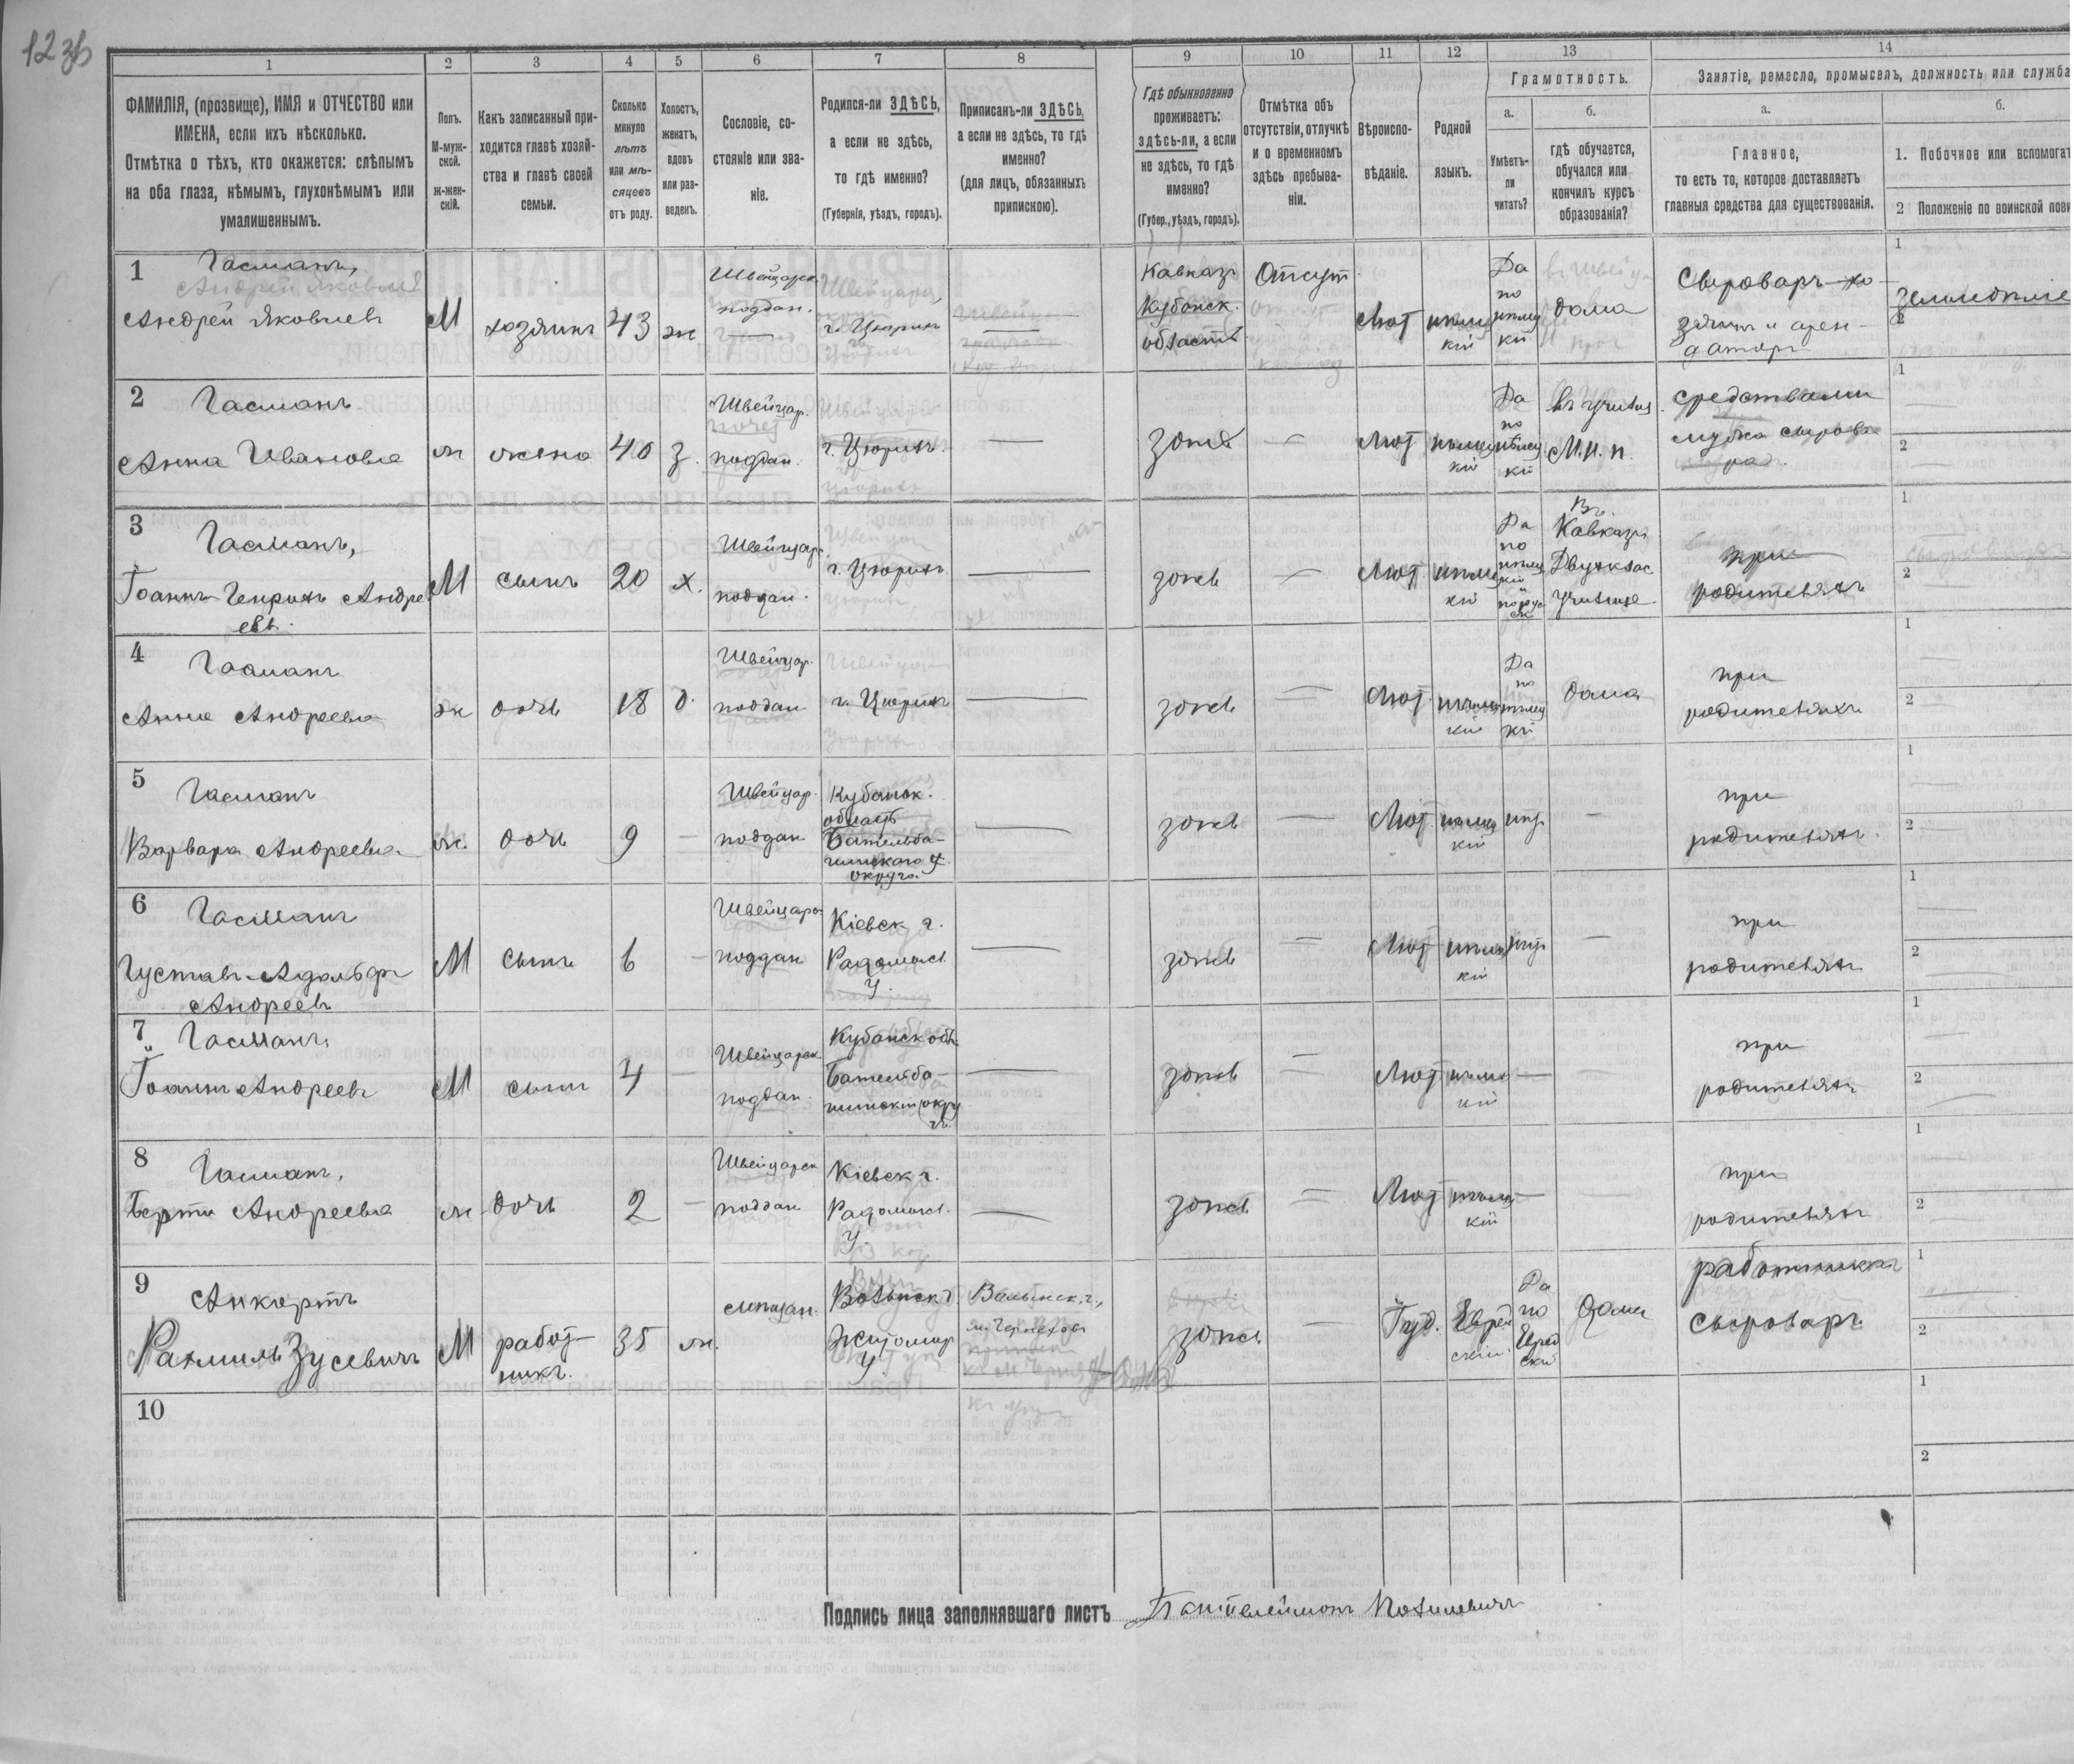 12 зв
1 2 3 4 5 6 7 8 9 10 11 12 13 14
ФАМИЛІЯ, (прозвище), ИМЯ и ОТЧЕСТВО или
ИМЕНА, если ихъ нѣсколько.
Отмѣтка о тѣхъ, кто окажется: слѣпымъ
на оба глаза, нѣмымъ, глухонѣмымъ или
умалишеннымъ.
Полъ.
М-муж-
ской.
ж-жен-
скій.
Какъ записанный при-
ходится главѣ хозяй-
ства и главѣ своей
семьи.
Сколько
минуло
лѣтъ
или мѣ-
сяцевъ
отъ роду.
Холостъ,
женатъ,
вдовъ
или раз-
веденъ.
Сословіе, со-
стояніе или зва-
ніе.
Родился-ли ЗДѢСЬ,
а если не здѣсь,
то гдѣ именно?
(Губернія, уѣздъ, городъ).
Приписанъ-ли ЗДѢСЬ,
а если не здѣсь, то гдѣ
именно?
(для лицъ, обязанныхъ
припискою).
Гдѣ обыкновенно
проживаетъ:
здѣсь-ли, а если
не здѣсь, то гдѣ
именно?
(Губер., уѣздъ, городъ).
Отмѣтка объ
отсутствіи, отлучкѣ
и о временномъ
здѣсь пребыва-
ніи.
Вѣроиспо-
вѣданіе.
Родной
языкъ.
Грамотность.
а.
Умѣетъ-
ли
читать?
б.
гдѣ обучается,
обучался или
кончилъ курсъ
образованія?
Занятіе, ремесло, промыселъ, должность или служба
а.
Главное,
то есть то, которое доставляетъ
главныя средства для существованія.
б.
1. Побочное или вспомогат
2 Положеніе по воинской пови
1
Гасманъ,
Андрей Яковлев
Андрей Яковлевъ
М
хозяинъ
43
ж
Швейцарск.
поддан.
г. Цюрихъ
—
Кавказъ
Кубанск.
область
Отсут.
Лют
нѣмец
кій
Да
по
нѣмец
кій
дома
Сыроваръ-хо-
зяинъ и арен-
даторъ
1
Земледѣліе
2
2
Гасманъ
Анна Ивановна
ж
жена
40
з.
Швейцар.
поддан.
г. Цюрихъ.
—
зоже
—
Лют
нѣмец
кій
Да
по
нѣмец
кій
въ училищ.
М. н. п.
средствами
мужа сырова
ра.
1
2
3
Гасманъ,
Іоаннъ-Генрихъ Андре
евъ.
М
сынъ
20
х.
Швейцар.
поддан.
г. Цюрихъ.
—
зоже
—
Лют.
нѣмец
кій
Да
по
нѣмец
кій
и
по рус
ск
Въ
Кавказѣ
Двуклас.
училище
при
родителяхъ
1
2
4
Гасманъ
Анна Андреевна
ж
дочь
18
д.
Швейцар.
поддан
г. Цюрихъ
—
зоже
—
Лют.
нѣмец
кій
Да
по
нѣмец
кій
дома
при
родителяхъ
1
2
5
Гасманъ
Варвара Андреевна
ж.
дочь
9
—
Швейцар.
поддан
Кубанск.
область
Батальпа-
шинскаго
округа.
—
зоже
—
Лют.
нѣмец
кій
нѣт
—
при
родителяхъ.
1
2
6
Гасманъ
Густавъ-Адольфъ
Андреевъ
М
сынъ
6
—
Швейцарс
поддан
Кіевск г.
Радомысл.
У.
—
зоже
—
Лют
нѣмец
кій
нѣт
—
при
родителяхъ
1
2
7
Гасманъ,
Іоаннъ Андреевъ
М
сынъ
4
—
Швейцарск.
поддан.
Кубанск обл.
Баталпа-
шинскій окру
гъ.
—
зоже
—
Лют
нѣмец
кій
—
—
при
родителяхъ
1
2
8
Гасманъ,
Берта Андреевна
ж
дочь
2
—
Швейцарск
поддан
Кіевск г.
Радомысл.
У.
—
зоже
—
Лют
нѣмец
кій
—
при
родителяхъ
1
2
9
Анкортъ
Рахмиль Зусевичъ
М
работ-
никъ.
35
ж.
мѣщан.
Волынск г
Житомир
У.
Волынск. г.,
м. Черняхов
зоже
—
Іуд.
Еврей
скій.
Да
по
Еврей
скій
дома
работникъ
сыроваръ
1
2
10
1
2
Подпись лица заполнявшаго листъ Пантелеймонъ